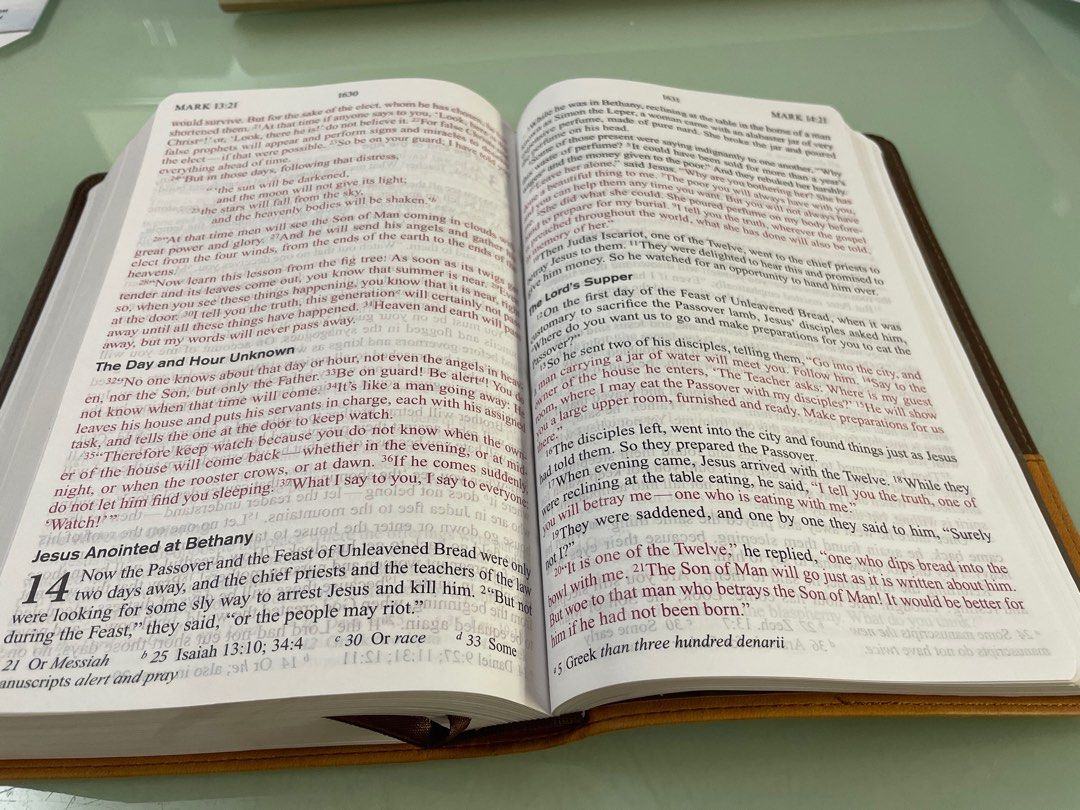 MARK 13:21
1630
would survive. But for the sake of the elect, whom he has chosen, he
shortened them. 21At that time if anyone says to you, ‘Look, here is
Christa!’ or, ‘Look, there he is!’ do not believe it. 22For false Christs and
false prophets will appear and perform signs and miracles to deceive
the elect—if that were possible. 23So be on your guard; I have told you
everything ahead of time.
24“But in those days, following that distress,
“ ‘the sun will be darkened,
and the moon will not give its light;
25the stars will fall from the sky,
and the heavenly bodies will be shaken.’b
26“At that time men will see the Son of Man coming in clouds with
great power and glory. 27And he will send his angels and gather his
elect from the four winds, from the ends of the earth to the ends of the
heavens.
28“Now learn this lesson from the fig tree: As soon as its twigs get
tender and its leaves come out, you know that summer is near. 29Even
so, when you see these things happening, you know that it is near, right
at the door. 30I tell you the truth, this generationc will certainly not pass
away until all these things have happened. 31Heaven and earth will pass
away, but my words will never pass away.
The Day and Hour Unknown
32“No one knows about that day or hour, not even the angels in heav-
en, nor the Son, but only the Father. 33Be on guard! Be alertd! You do
not know when that time will come. 34It’s like a man going away: He
leaves his house and puts his servants in charge, each with his assigned
task, and tells the one at the door to keep watch.
35“Therefore keep watch because you do not know when the own-
er of the house will come back—whether in the evening, or at mid-
night, or when the rooster crows, or at dawn. 36If he comes suddenly,
do not let him find you sleeping. 37What I say to you, I say to everyone:
‘Watch!’ ”
Jesus Anointed at Bethany
14 Now the Passover and the Feast of Unleavened Bread were only
two days away, and the chief priests and the teachers of the law
were looking for some sly way to arrest Jesus and kill him. 2“But not
during the Feast,” they said, “or the people may riot.”
21 Or Messiah b 25 Isaiah 13:10; 34:4 c 30 Or race d 33 Some
anuscripts alert and pray
1631
MARK 14:21
While he was in Bethany, reclining at the table in the home of a man
known as Simon the Leper, a woman came with an alabaster jar of very
expensive perfume, made of pure nard. She broke the jar and poured
the perfume on his head.
Some of those present were saying indignantly to one another, “Why
this waste of perfume? 5It could have been sold for more than a year’s
wages and the money given to the poor.” And they rebuked her harshly.
“Leave her alone,” said Jesus. “Why are you bothering her? She has
done a beautiful thing to me. The poor you will always have with you,
and you can help them any time you want. But you will not always have
me. She did what she could. She poured perfume on my body before-
hand to prepare for my burial. I tell you the truth, wherever the gospel
is preached throughout the world, what she has done will also be told,
in memory of her.”
Then Judas Iscariot, one of the Twelve, went to the chief priests to
betray Jesus to them. 11They were delighted to hear this and promised to
give him money. So he watched for an opportunity to hand him over.
The Lord’s Supper
12On the first day of the Feast of Unleavened Bread, when it was
customary to sacrifice the Passover lamb, Jesus’ disciples asked him,
“Where do you want us to go and make preparations for you to eat the
Passover?”
13So he sent two of his disciples, telling them, “Go into the city, and
a man carrying a jar of water will meet you. Follow him. 14Say to the
owner of the house he enters, ‘The Teacher asks: Where is my guest
room, where I may eat the Passover with my disciples?’ 15He will show
you a large upper room, furnished and ready. Make preparations for us
there.”
16The disciples left, went into the city and found things just as Jesus
had told them. So they prepared the Passover.
17When evening came, Jesus arrived with the Twelve. 18While they
were reclining at the table eating, he said, “I tell you the truth, one of
you will betray me—one who is eating with me.”
19They were saddened, and one by one they said to him, “Surely
not I?”
20“It is one of the Twelve,” he replied, “one who dips bread into the
bowl with me. 21The Son of Man will go just as it is written about him.
But woe to that man who betrays the Son of Man! It would be better for
him if he had not been born.”
a 5 Greek than three hundred denarii